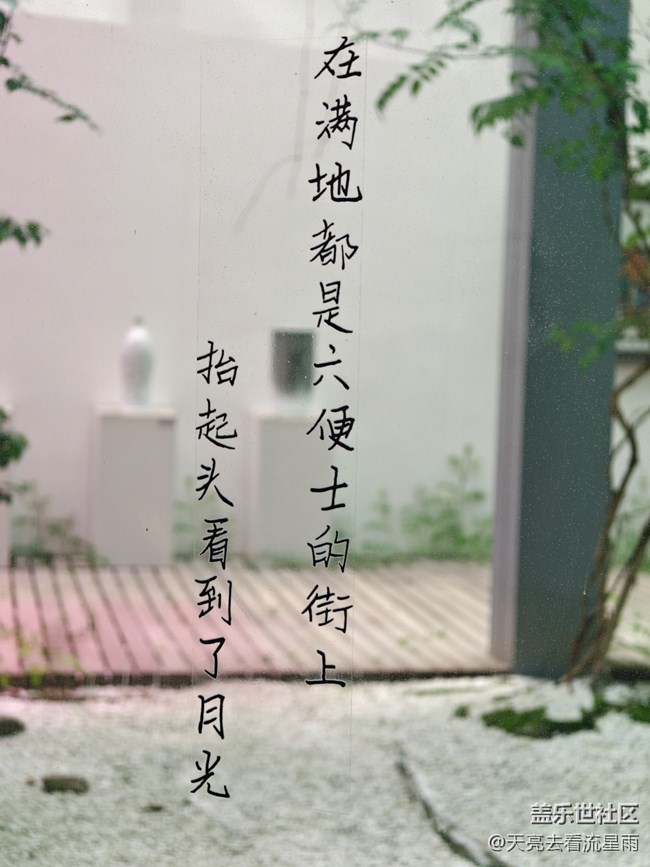 在满地都是六便士的街上
抬起头看到了月光
盖乐世社区
@天亮去看流星雨